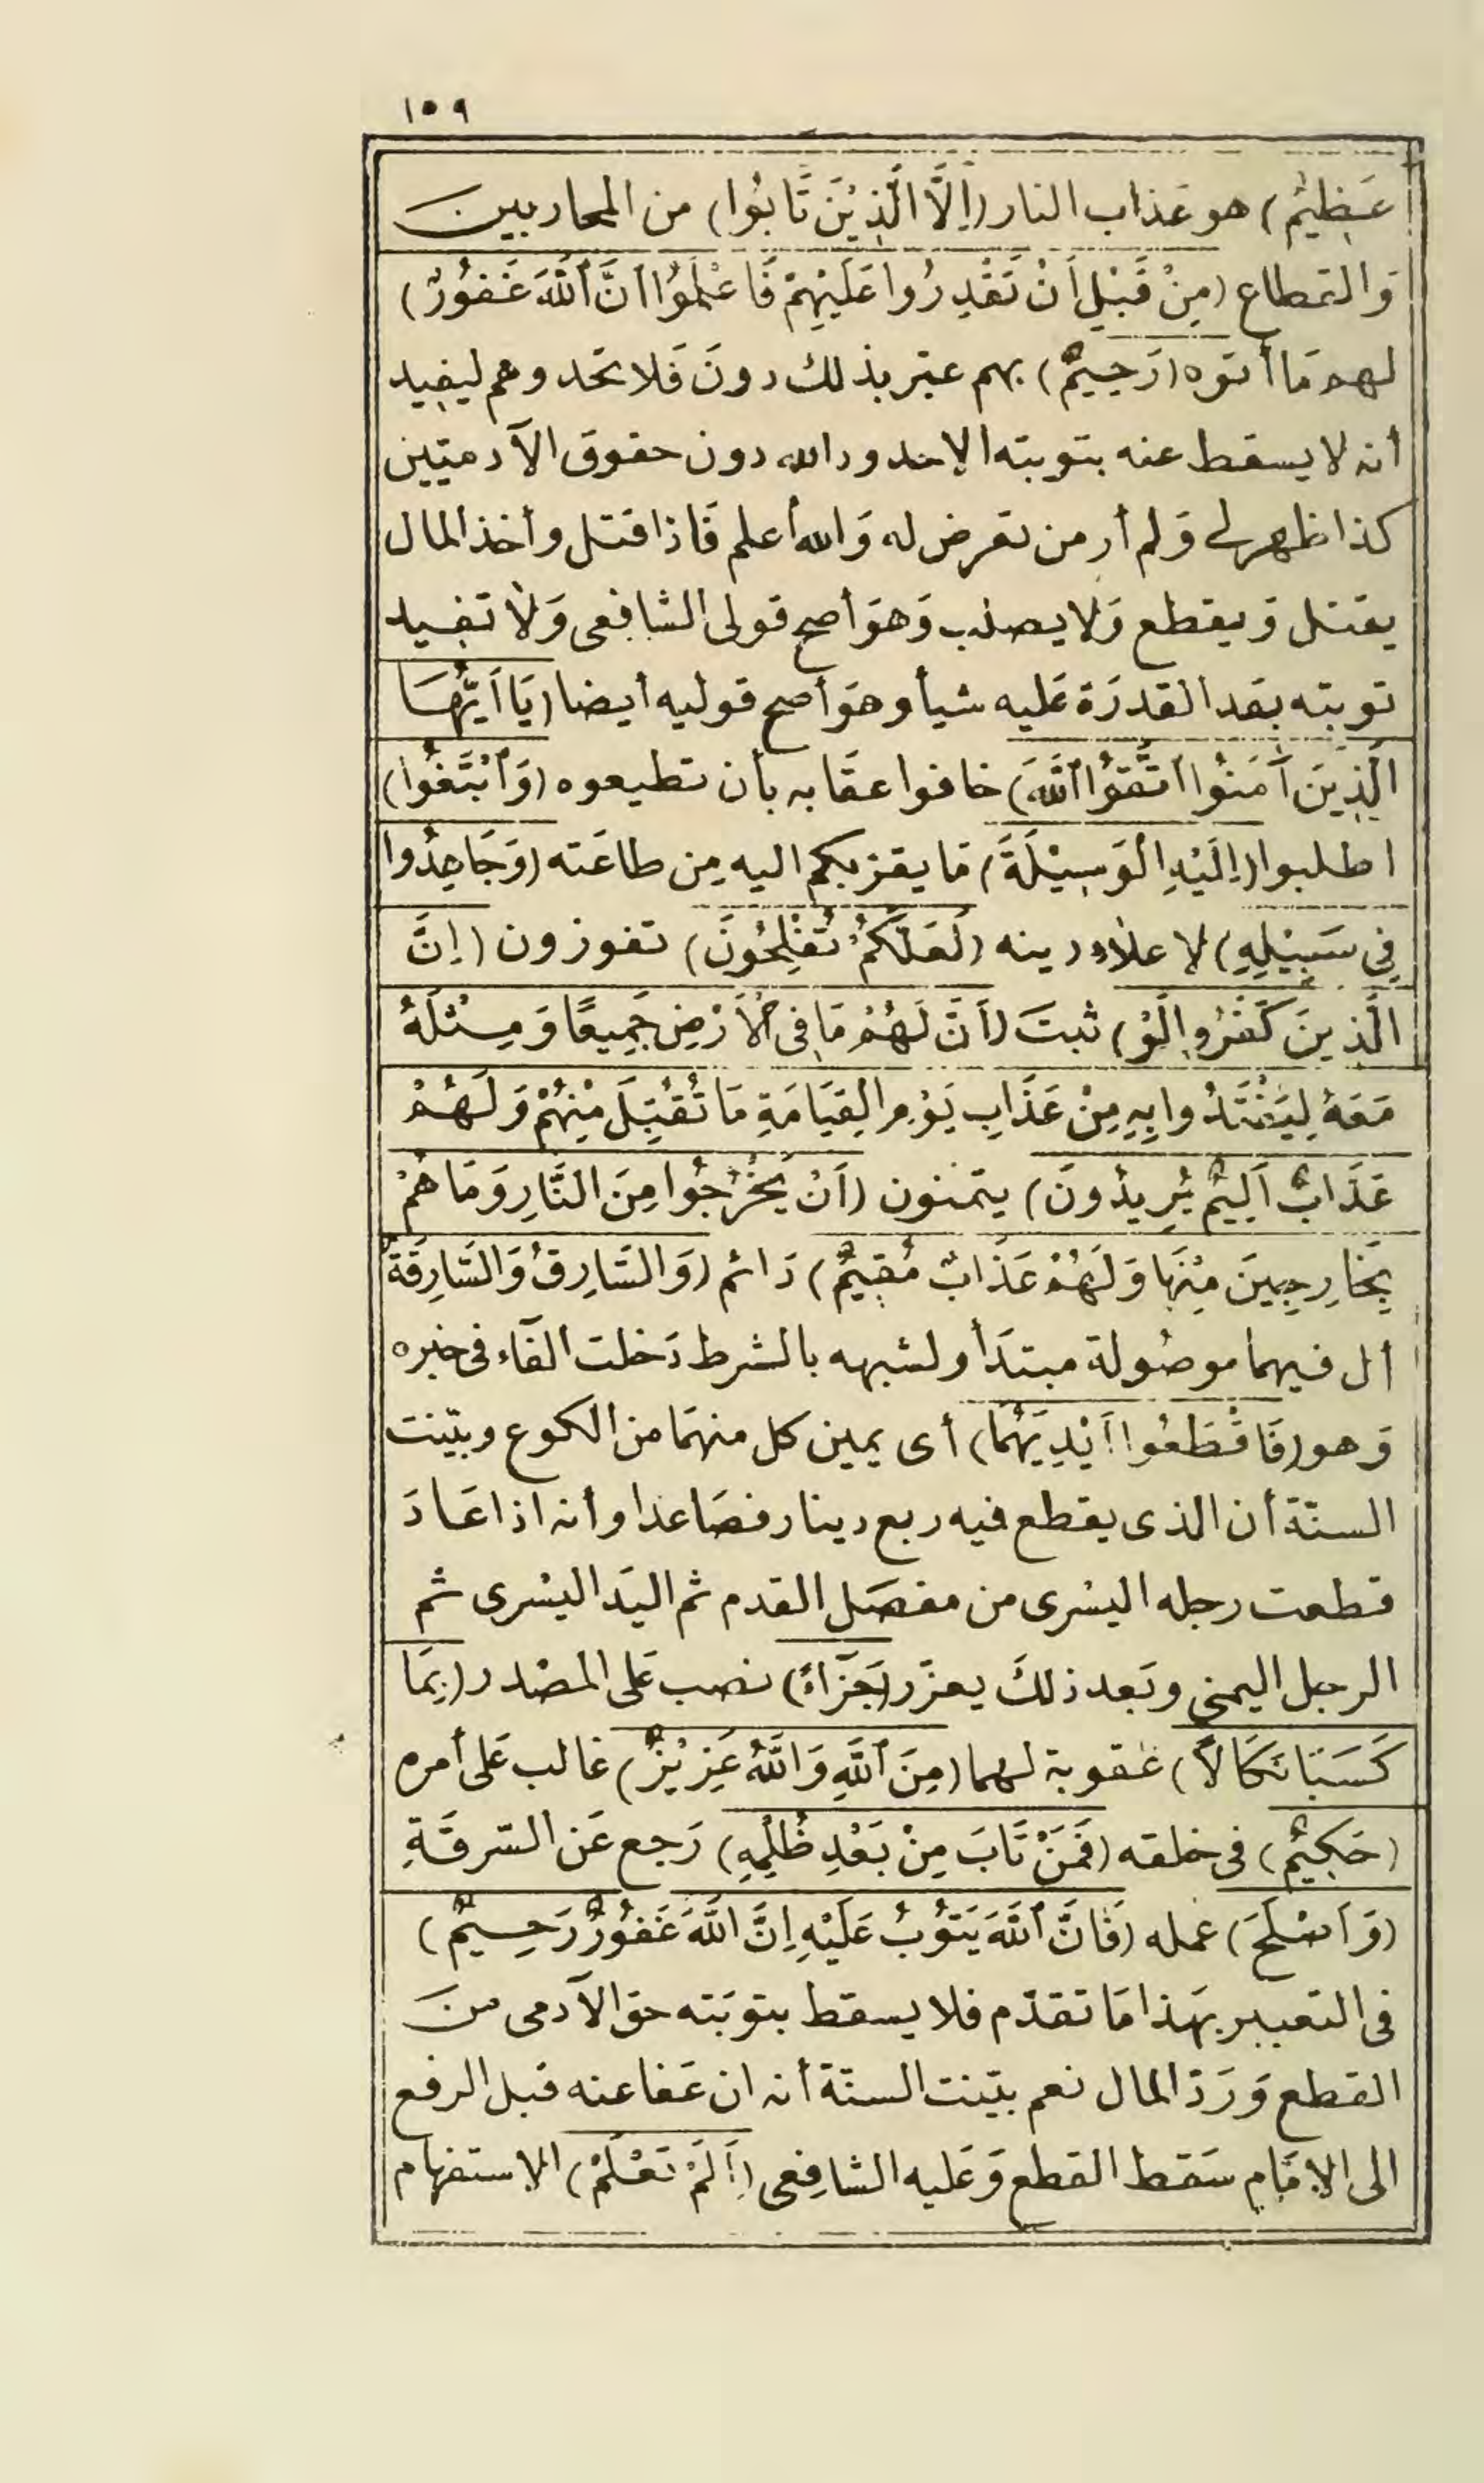 ١٥٩
عَظِيمٌ) هو عَذاب النار (إِلَّا الَّذِيْنَ تَابُوا) من المحاربين
وَالقطاع (مِنْ قَبْلِ أَنْ تَقْدِرُوا عَلَيْهِمْ فَاعْلَمُوا أَنَّ ٱللَّهَ غَفُورٌ)
لهم مَا أتوه (رَحِيمٌ) بهم عبّر بذلك دونَ فَلا تحَدوهم ليفيد
أنه لا يسقط عنه بتوبته الا حدود الله دون حقوق الآدميّين
كذا ظهر لى وَلم أر من تعرض له وَالله أعلم فَاذا قتل وأخذ المال
يقتل وَيقطع وَلا يصلب وَهوَ أصح قولى الشافِعى وَلا تفيد
توبته بعَد القدرَة عَليه شيأ وهوَ أصح قوليه أيضا (يَا أَيُّهَا
الَّذِينَ آمَنُوا اتَّقُوا ٱللَّهَ) خافوا عقَابه بأن تطيعوه (وَٱبْتَغُوا)
اطلبوا (إِلَيْهِ الْوَسِيْلَةَ) مَا يقرّبكم اليه مِن طاعَته (وَجَاهِدُوا
فِي سَبِيْلِهِ) لاعلاء دينه (لَعَلَّكُمْ تُفْلِحُونَ) تفوزون (إِنَّ
الَّذِينَ كَفَرُوا لَوْ) ثبتَ (أَنَّ لَهُمْ مَا فِى الْأَرْضِ جَمِيعًا وَمِثْلَهُ
مَعَهُ لِيَفْتَدُوا بِهِ مِنْ عَذَابِ يَوْمِ الْقِيَامَةِ مَا تُقُبِّلَ مِنْهُمْ وَلَهُمْ
عَذَابٌ أَلِيمٌ يُرِيدُونَ) يتمنون (أَنْ يَخْرُجُوا مِنَ النَّارِ وَمَا هُمْ
بِخَارِجِينَ مِنْهَا وَلَهُمْ عَذَابٌ مُقِيمٌ) دَائم (وَالسَّارِقُ وَالسَّارِقَةُ)
أل فيهما موصُولة مبتدَأ ولشبهه بالشرط دَخلت الفآء فى خبره
وَهو (فَاقْطَعُوا أَيْدِيَهُمَا) أى يمين كل منهمَا من الكوع وبيّنت
السنّة أن الذى يقطع فيه ربع دينار فصَاعدا وأنه اذا عَادَ
قطعت رجله اليسْرى من مفصَل القدم ثم اليَد اليسْرى ثم
الرجل اليمنى وبَعد ذلكَ يعزّر (جَزَآءً) نصب عَلى المصْدر (بِمَا
كَسَبَا نَكَالًا) عقوبة لهما (مِنَ ٱللَّهِ وَاللَّهُ عَزِيْزٌ) غالب عَلى أمره
(حَكِيمٌ) فى خلقه (فَمَنْ تَابَ مِنْ بَعْدِ ظُلْمِهِ) رَجع عَن السّرقَةِ
(وَأَصْلَحَ) عمله (فَإِنَّ ٱللَّهَ يَتُوْبُ عَلَيْهِ إِنَّ اللَّهَ غَفُورٌ رَحِيمٌ)
فى التعبير بهَذا مَا تقدّم فلا يسقط بتوبَته حق الآدمى منَ
القطع وَرَدّ المال نعم بيّنت السنّة أنه ان عَفا عنه قبل الرفع
الى الامَام سَقط القطع وَعَليه الشافِعى (أَلَمْ تَعْلَمْ) الاستفهام